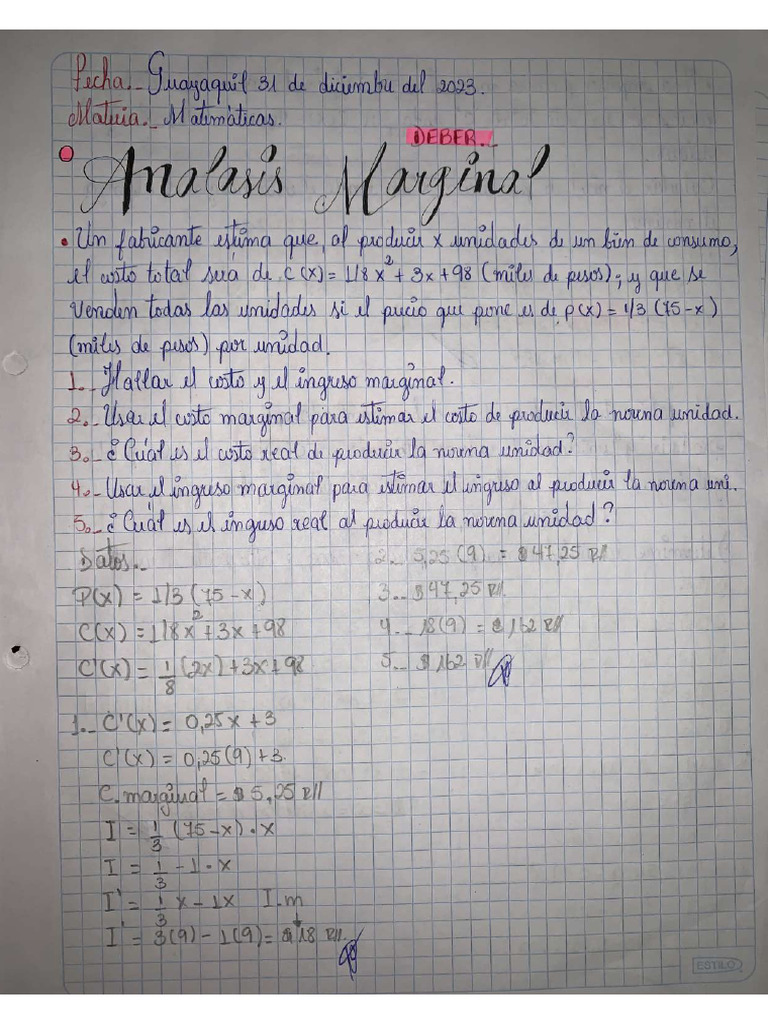 Fecha.- Guayaquil 31 de diciembre del 2023.
Materia.- Matemáticas.
DEBER.-
Analasis Marginal
• Un fabricante estima que, al producir x unidades de un bien de consumo,
el costo total será de C(x) = 1/8x² + 3x + 98 (miles de pesos); y que se
venden todas las unidades si el precio que pone es de p(x) = 1/3 (75 - x)
(miles de pesos) por unidad.
1.- Hallar el costo y el ingreso marginal.
2.- Usar el costo marginal para estimar el costo de producir la novena unidad.
3.- ¿Cuál es el costo real de producir la novena unidad?
4.- Usar el ingreso marginal para estimar el ingreso al producir la novena uni.
5.- ¿Cuál es el ingreso real al producir la novena unidad?
Datos.-
P(x) = 1/3 (75 - x)
C(x) = 1/8x² + 3x + 98
C'(x) = 1/8 (2x) + 3x + 98
1.- C'(x) = 0,25x + 3
C'(x) = 0,25(9) + 3
C. marginal = $5,25 R//
I = 1/3 (75 - x) • x
I = 1/3 - 1 • x
I' = 1/3 x - 1x I.m
I' = 3(9) - 1(9) = $18 R//.
2.- 5,25 (9) = $47,25 R//
3.- $47,25 R//.
4.- 18(9) = $162 R//
5.- $162 R//
ESTILO